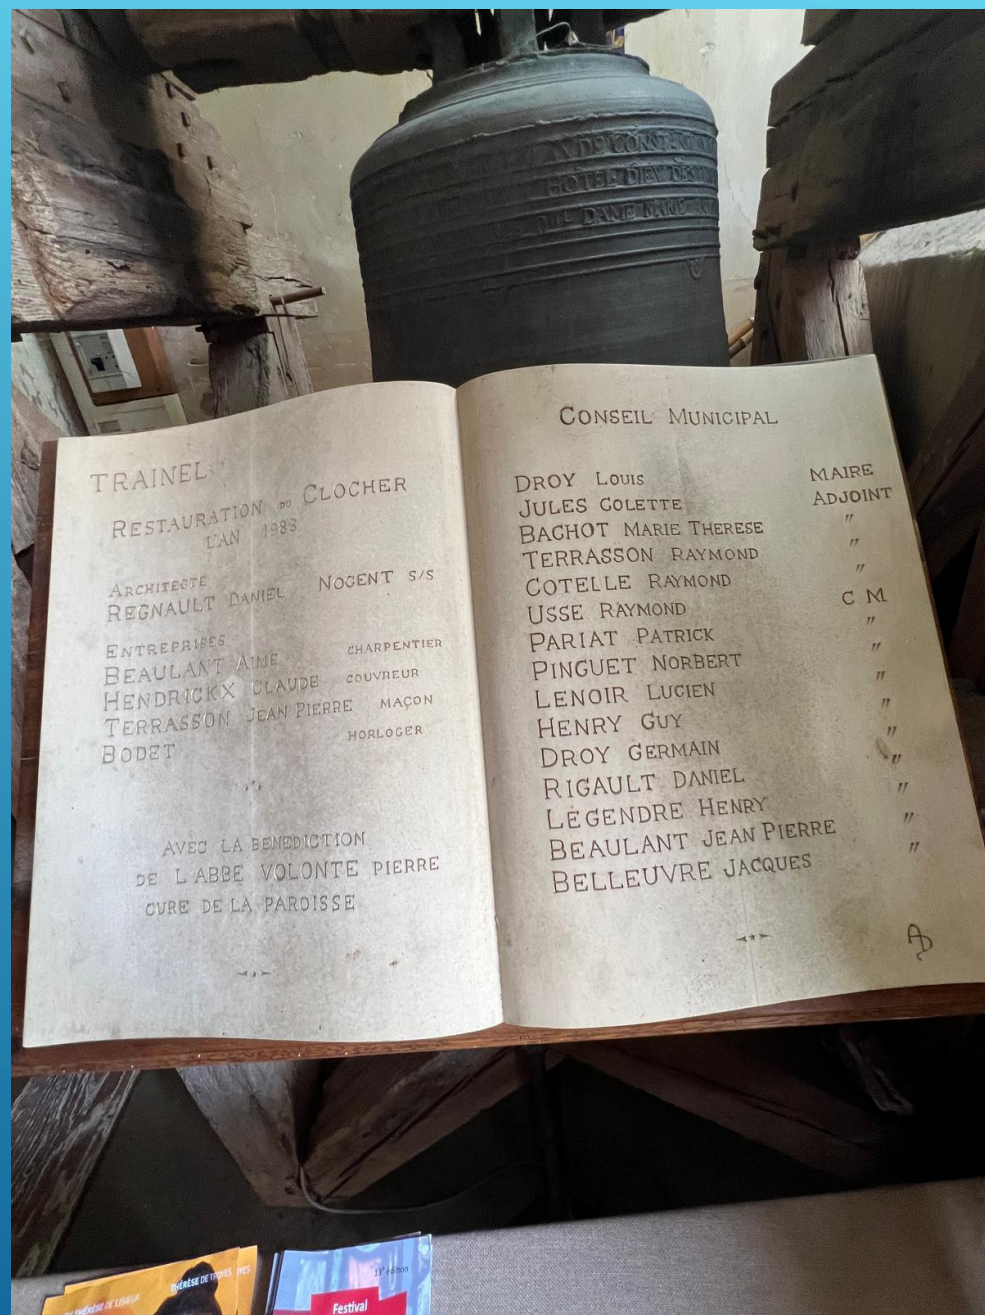 N DE CONSTENTIN
HOTEL DIEV DES
DAME MARIE
TRAINEL
RESTAURATION DU CLOCHER
L'AN 1983
ARCHITECTE
REGNAULT DANIEL NOGENT S/S
ENTREPRISES
BEAULANT AIME CHARPENTIER
HENDRICKX CLAUDE COUVREUR
TERRASSON JEAN PIERRE MAÇON
BODET HORLOGER
AVEC LA BENEDICTION
DE L ABBE VOLONTE PIERRE
CURE DE LA PAROISSE
CONSEIL MUNICIPAL
DROY LOUIS MAIRE
JULES COLETTE ADJOINT
BACHOT MARIE THERESE "
TERRASSON RAYMOND "
COTELLE RAYMOND "
USSE RAYMOND C M
PARIAT PATRICK "
PINGUET NORBERT "
LENOIR LUCIEN "
HENRY GUY "
DROY GERMAIN "
RIGAULT DANIEL "
LEGENDRE HENRY "
BEAULANT JEAN PIERRE "
BELLEUVRE JACQUES "
AD
THÉRÈSE DE TROYES
THÉRÈSE DE LISIEUX
13e édition
Festival